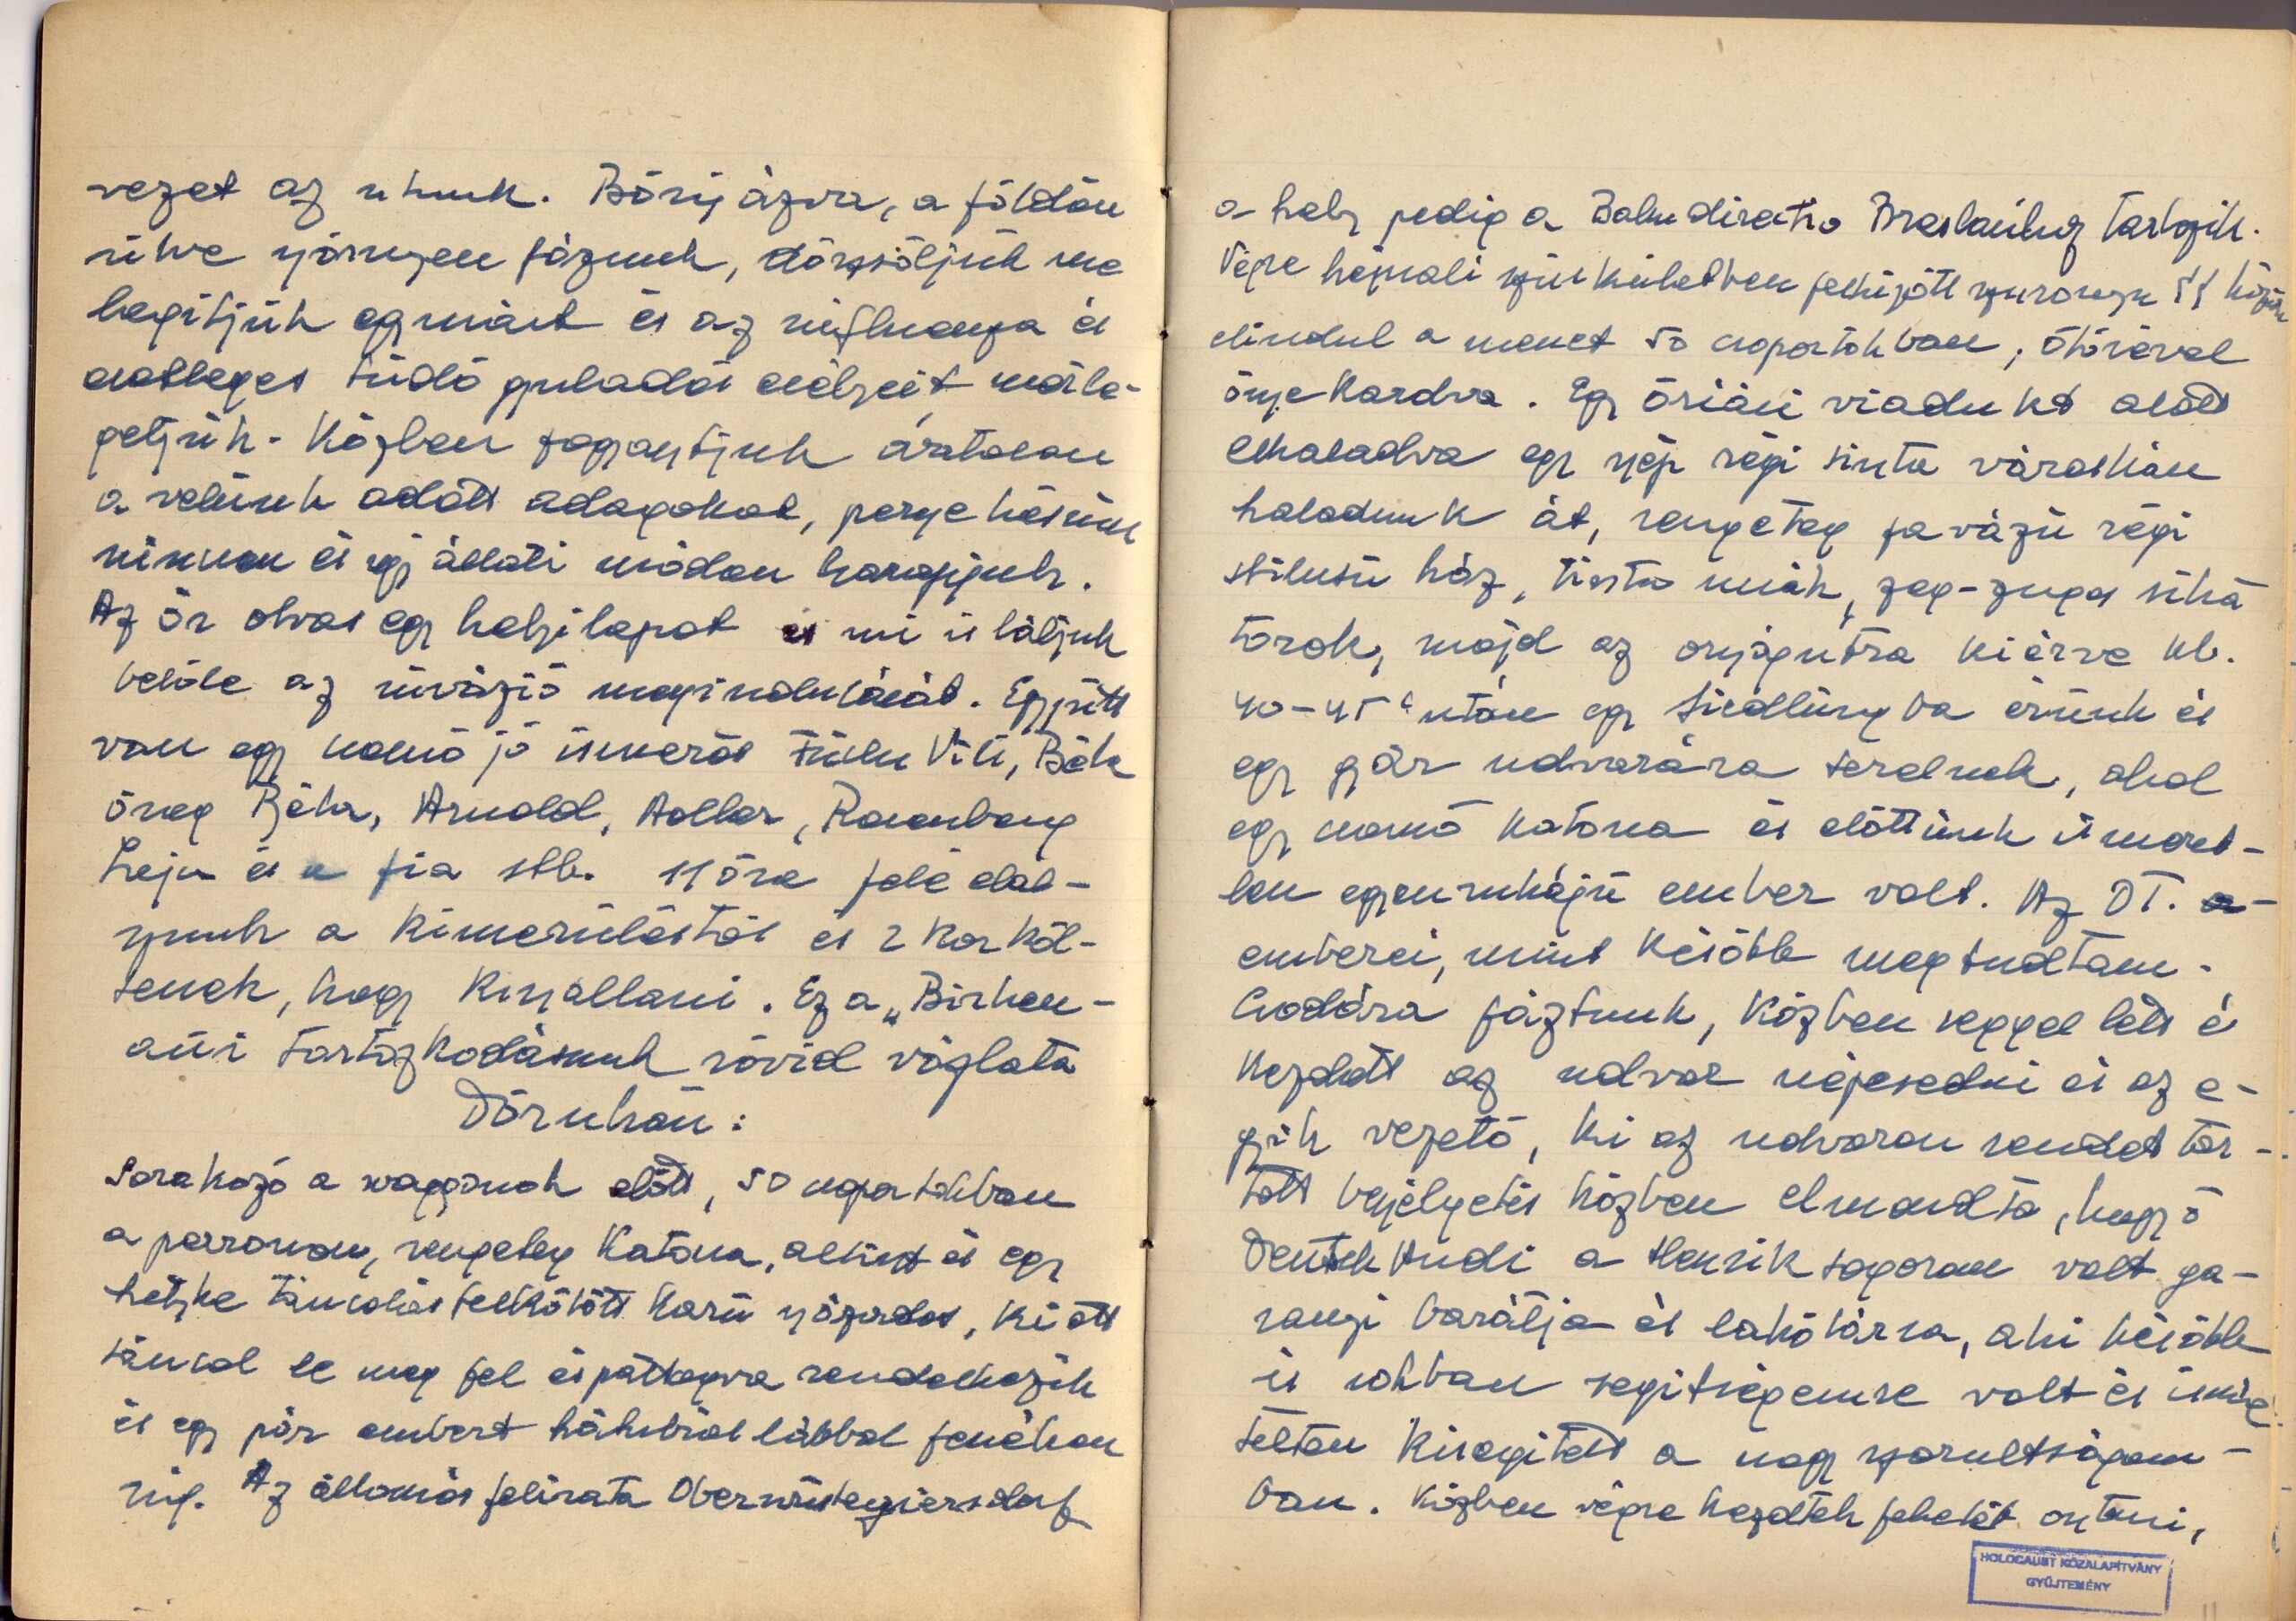 vezet az utunk. Bőrig ázva, a földön
ülve nyirkosan fázunk, dörzsöljük me
legitjük egymást és az influenza és
esetleges tüdő gyuladás esélyeit mérle-
geljük. Közben fogyasztjuk
a velünk adott adagokat, persze késünk
nincsen és így állati módon harapjuk.
Az őr olvas egy helyi lapot és mi is látjuk
belőle az invázió megindulását. Együtt
van egy csomó jó ismerős Vili, Béla
öreg Arnold, Adler, Rosenberg
és a fia stb. 11 óra felé elal-
szunk a kimerüléstől és 2 kor köl-
tenek, hogy kiszállani. Ez a „Birken-
aui tartózkodásunk rövid vázlata
Dörnhau:
Sorakozó a waggonok előtt, 50 csoportokban
a perronon, rengeteg katona, és egy
hetyke táncolós felkötött karú százados, ki ott
táncol le meg fel és pattogva rendelkezik
és egy pár embert hátulról lábbal fenéken
rúg. Az állomás felirata Oberwüstegiersdorf
a hely pedig a Bahndirektio Breslauhoz tartozik.
Végre hajnali szürkületben felhúzott szuronyu SS közön
elindul a menet 50 csoportokban, ötösével
őrje Kardva. Egy óriási viadukt alatt
elhaladva egy szép régi tiszta városkán
haladunk át, rengeteg favázú régi
stilusú ház, tiszta utcák, zeg-zugos siká
torok, majd az országutra kiérve kb.
40-45' után egy Siedlungba érünk és
egy gyár udvarára terelnek, ahol
egy csomó katona és előttünk ismeret-
len egyenruhájú ember volt. Az OT.
emberei, mint később megtudtam.
Csodára fáztunk, közben reggel lett és
kezdett az udvar népesedni és az e-
gyik vezető, ki az udvaron rendet tar-
tott beszélgetés közben elmondta, hogy ő
Deutsch Andi a Henrik sógorom volt ga-
rangi barátja és lakótársa, aki később
is sokban segitségemre volt és ismé
telten kisegitett a nagy szorultságom-
ban. Közben végre kezdték feketét osztani,
HOLOCAUST KÖZALAPÍTVÁNY
GYŰJTEMÉNY